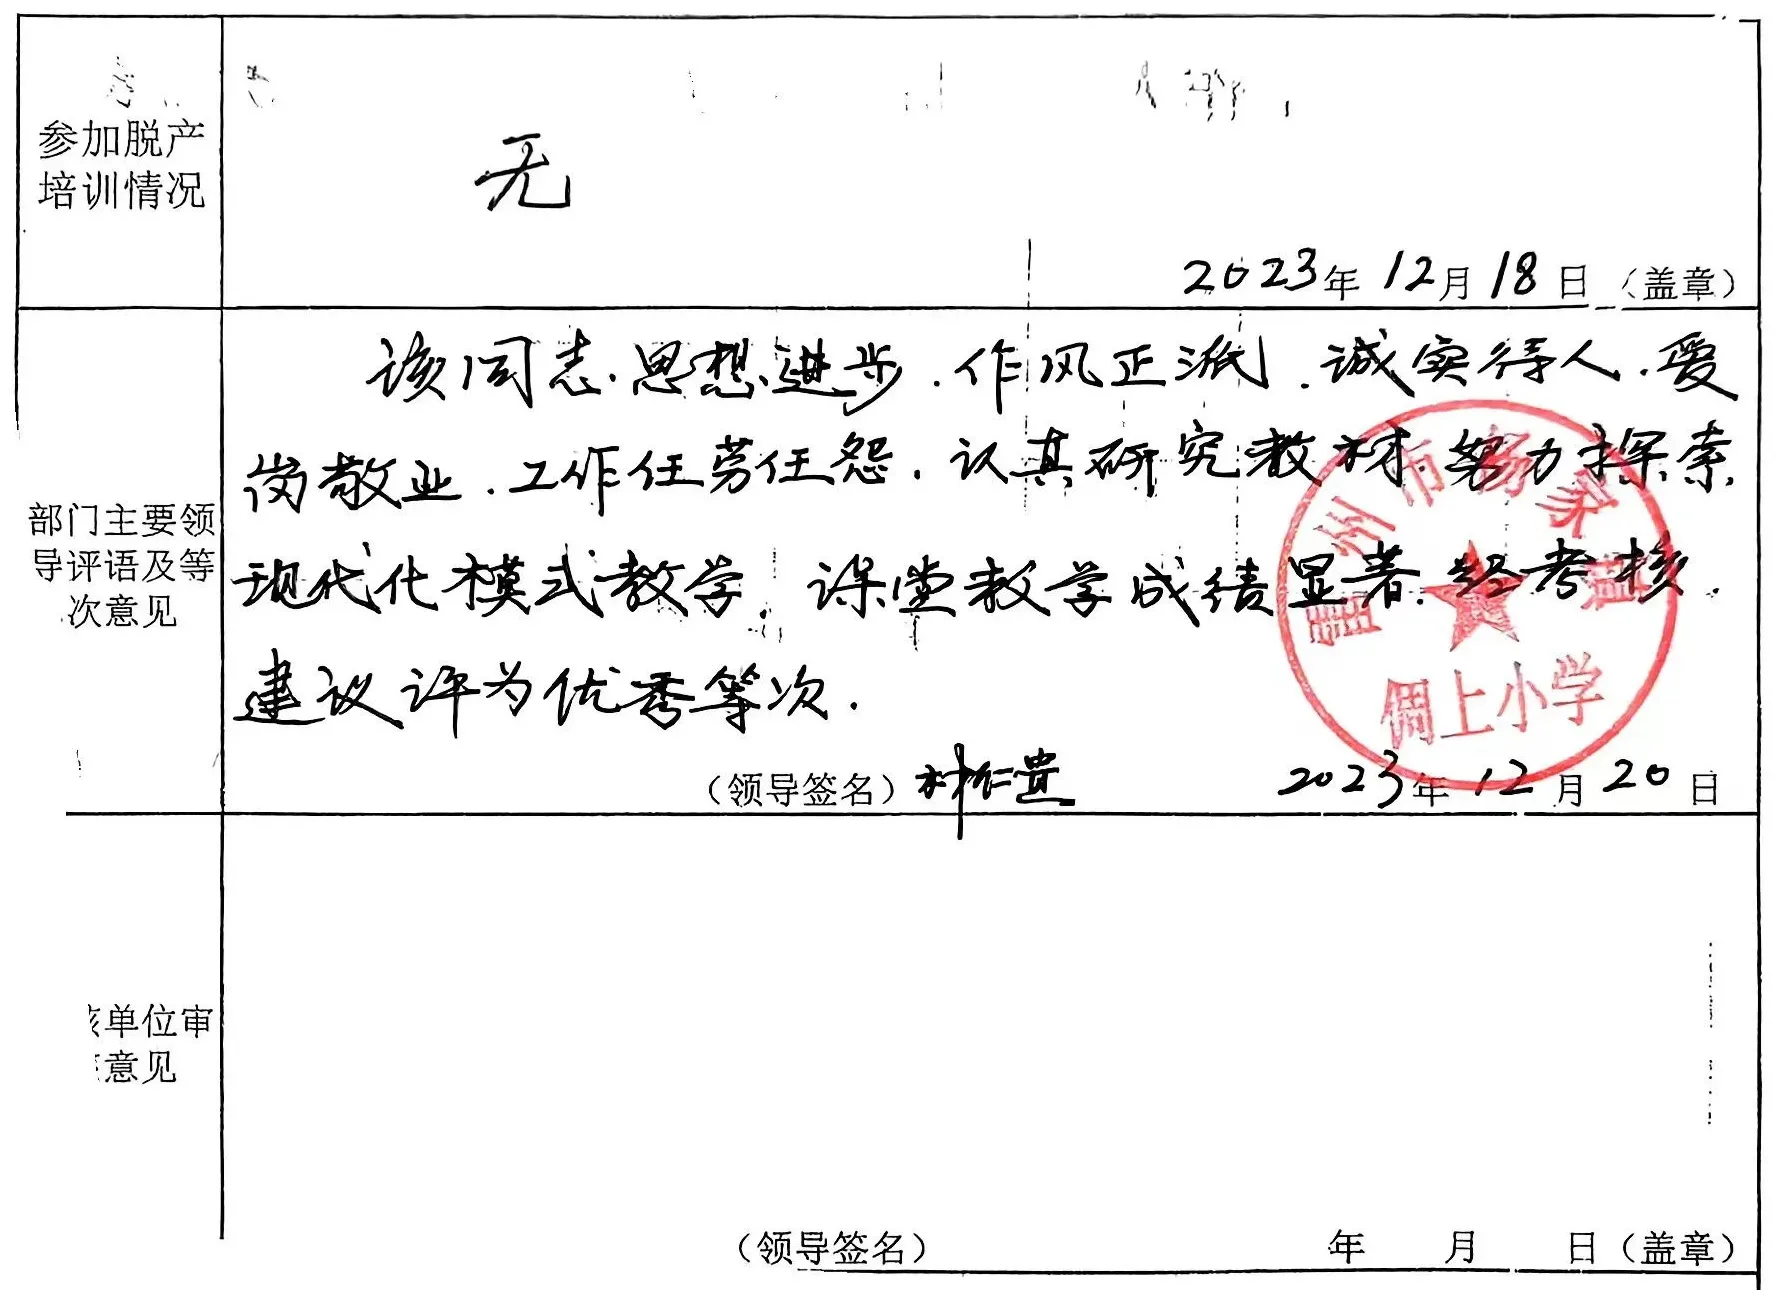 参加脱产
培训情况
无
2023年12月18日（盖章）
部门主要领
导评语及等
次意见
该同志思想进步，作风正派，诚实待人，爱
岗敬业，工作任劳任怨，认真研究教材，努力探索
现代化模式教学，课堂教学成绩显著，经考核，
建议评为优秀等次.
州市杨家
小学
（领导签名）仁贵 2023年12月20日
单位审
意见
（领导签名） 年 月 日（盖章）